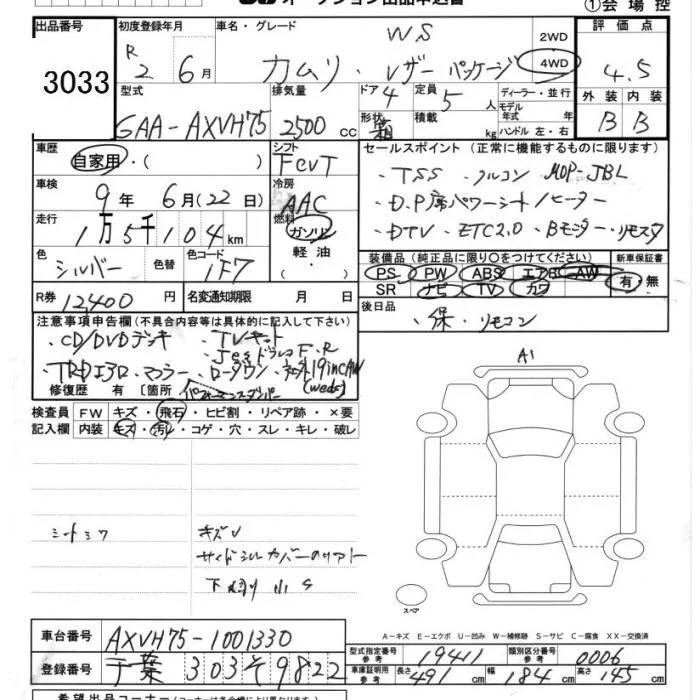 オークション出品申込書
①会場控
出品番号 3033
初度登録年月 R2 6月
車名・グレード WS
カムリ・レザーパッケージ
2WD
4WD
評価点 4.5
型式 6AA-AXVH75
排気量 2500 cc
ドア 4 形状 箱
定員 5 人
積載 kg
ディーラー・並行
モデル年式 年式
ハンドル 左・右
外装 B 内装 B
車歴 自家用・( )
シフト FCVT
車検 9年 6月(22日)
冷房 AAC
走行 1万5千104km
燃料 ガソリン 軽油 ・
色 シルバー 色替
色コード 1F7
R券 12,400円
名変通知期限 月 日
セールスポイント (正常に機能するものに限ります)
・TSS ・クルコン ・MOP-JBL
・D.P席パワーシート/ヒーター
・DTV ・ETC2.0 ・Bモニター・リモスタ
装備品 (純正品に限り○をつけてください)
PS PW ABS エアB AW
SR ナビ TV カワ
新車保証書 有・無
後日品 ・保・リモコン
注意事項申告欄 (不具合内容等は具体的に記入して下さい)
・CD/DVDデッキ ・TVキット
・ドラレコF.R
・TRDエアロ ・マフラー ・ローダウン ・社外19incAW
(weds)
パフォーマンスダンパー
修復歴 有 〔箇所
検査員 FW キズ・飛石・ヒビ割・リペア跡・×要
記入欄 内装 キズ・汚レ・コゲ・穴・スレ・キレ・破レ
シートシワ
キズV
サイドシルカバーのリアト
下廻り小S
A1
スペア
A-キズ E-エクボ U-凹み W-補修跡 S-サビ C-腐食 XX-交換済
車台番号 AXVH75-1001330
登録番号 千葉 303 そ 9822
型式指定番号 参考 19411
類別区分番号 参考 0006
車庫証明用 参考 長さ 491 cm 幅 184 cm 高さ 145 cm
希望出品コーナー